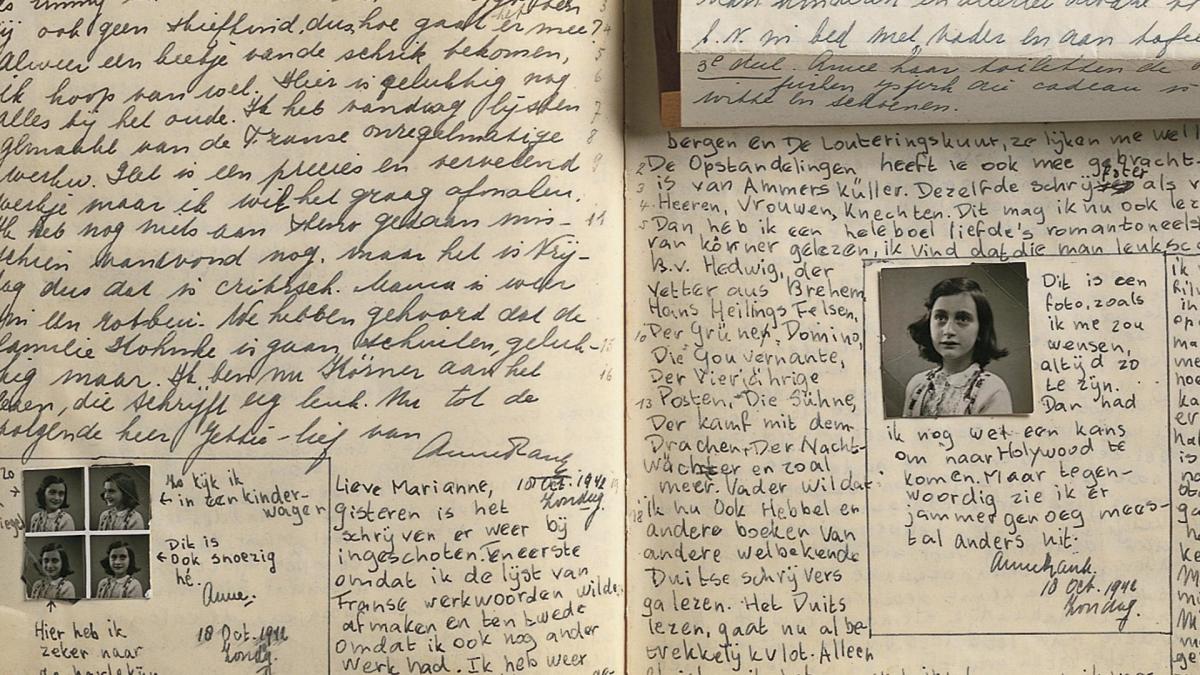 ij ook geen stiefkind, dus hoe gaat het er mee?
Alweer een beetje van de schrik bekomen,
ik hoop van wel. Hier is gelukkig nog
alles bij het oude. Ik heb vandaag lijsten
gemaakt van de Franse onregelmatige
werkw. Het is een precies en vervelend
werkje maar ik wil het graag afmaken.
Ik heb nog niets aan steno gedaan mis-
schien vanavond nog, maar het is Vrij-
dag dus dat is critisch. Mama is weer
in een
We hebben gehoord dat de
familie is gaan schuilen, geluk-
kig maar. Ik ben nu Körner aan het
lezen, die schrijft erg leuk. Nu tot de
volgende keer Jettie-lief van
Anne Frank
4
5
6
7
8
9
11
15
16
Zo kijk ik
in een kinder-
wagen
Dit is
ook snoezig
hé.
Anne.
Hier heb ik
zeker naar
18 Oct. 1942
Zondag.
Lieve Marianne,
18 Oct. 1942
Zondag.
gisteren is het
schrijven er weer bij
ingeschoten. Ten eerste
omdat ik de lijst van
Franse werkwoorden wilde
afmaken en ten twede
omdat ik ook nog ander
werk had. Ik heb weer
in bed met vader en aan tafel
3e deel. Anne haar toiletten de
witte en schoenen.
bergen en De Louteringskuur, ze lijken me wel
2 De Opstandelingen heeft ie ook mee gebracht.
3 is van Ammers küller. Dezelfde schrijfster als v
4 Heeren, Vrouwen, Knechten. Dit mag ik nu ook lez
5 Dan heb ik een heleboel liefde's romantoneels
van körner gelezen, ik vind dat die man leuk sc
B.v. Hedwig, der
Vetter aus Brehem
Hans Heilings Felsen,
10 Der Grünen Domino,
Die Gouvernante,
Der Vierjährige
13 Posten, Die Sühne,
Der kamf mit dem
Drachen, Der Nacht-
wächter en zoal
meer. Vader wil dat
18 ik nu ook Hebbel en
andere boeken van
andere welbekende
Duitse schrijvers
ga lezen. Het Duits
lezen, gaat nu al be-
trekkelijk vlot. Alleen
Dit is een
foto, zoals
ik me zou
wensen,
altijd zo
te zijn.
Dan had
ik nog wel een kans
om naar Holywood te
komen. Maar tegen-
woordig zie ik er
jammer genoeg mees-
tal anders uit.
Annefrank.
18 Oct. 1942
Zondag.